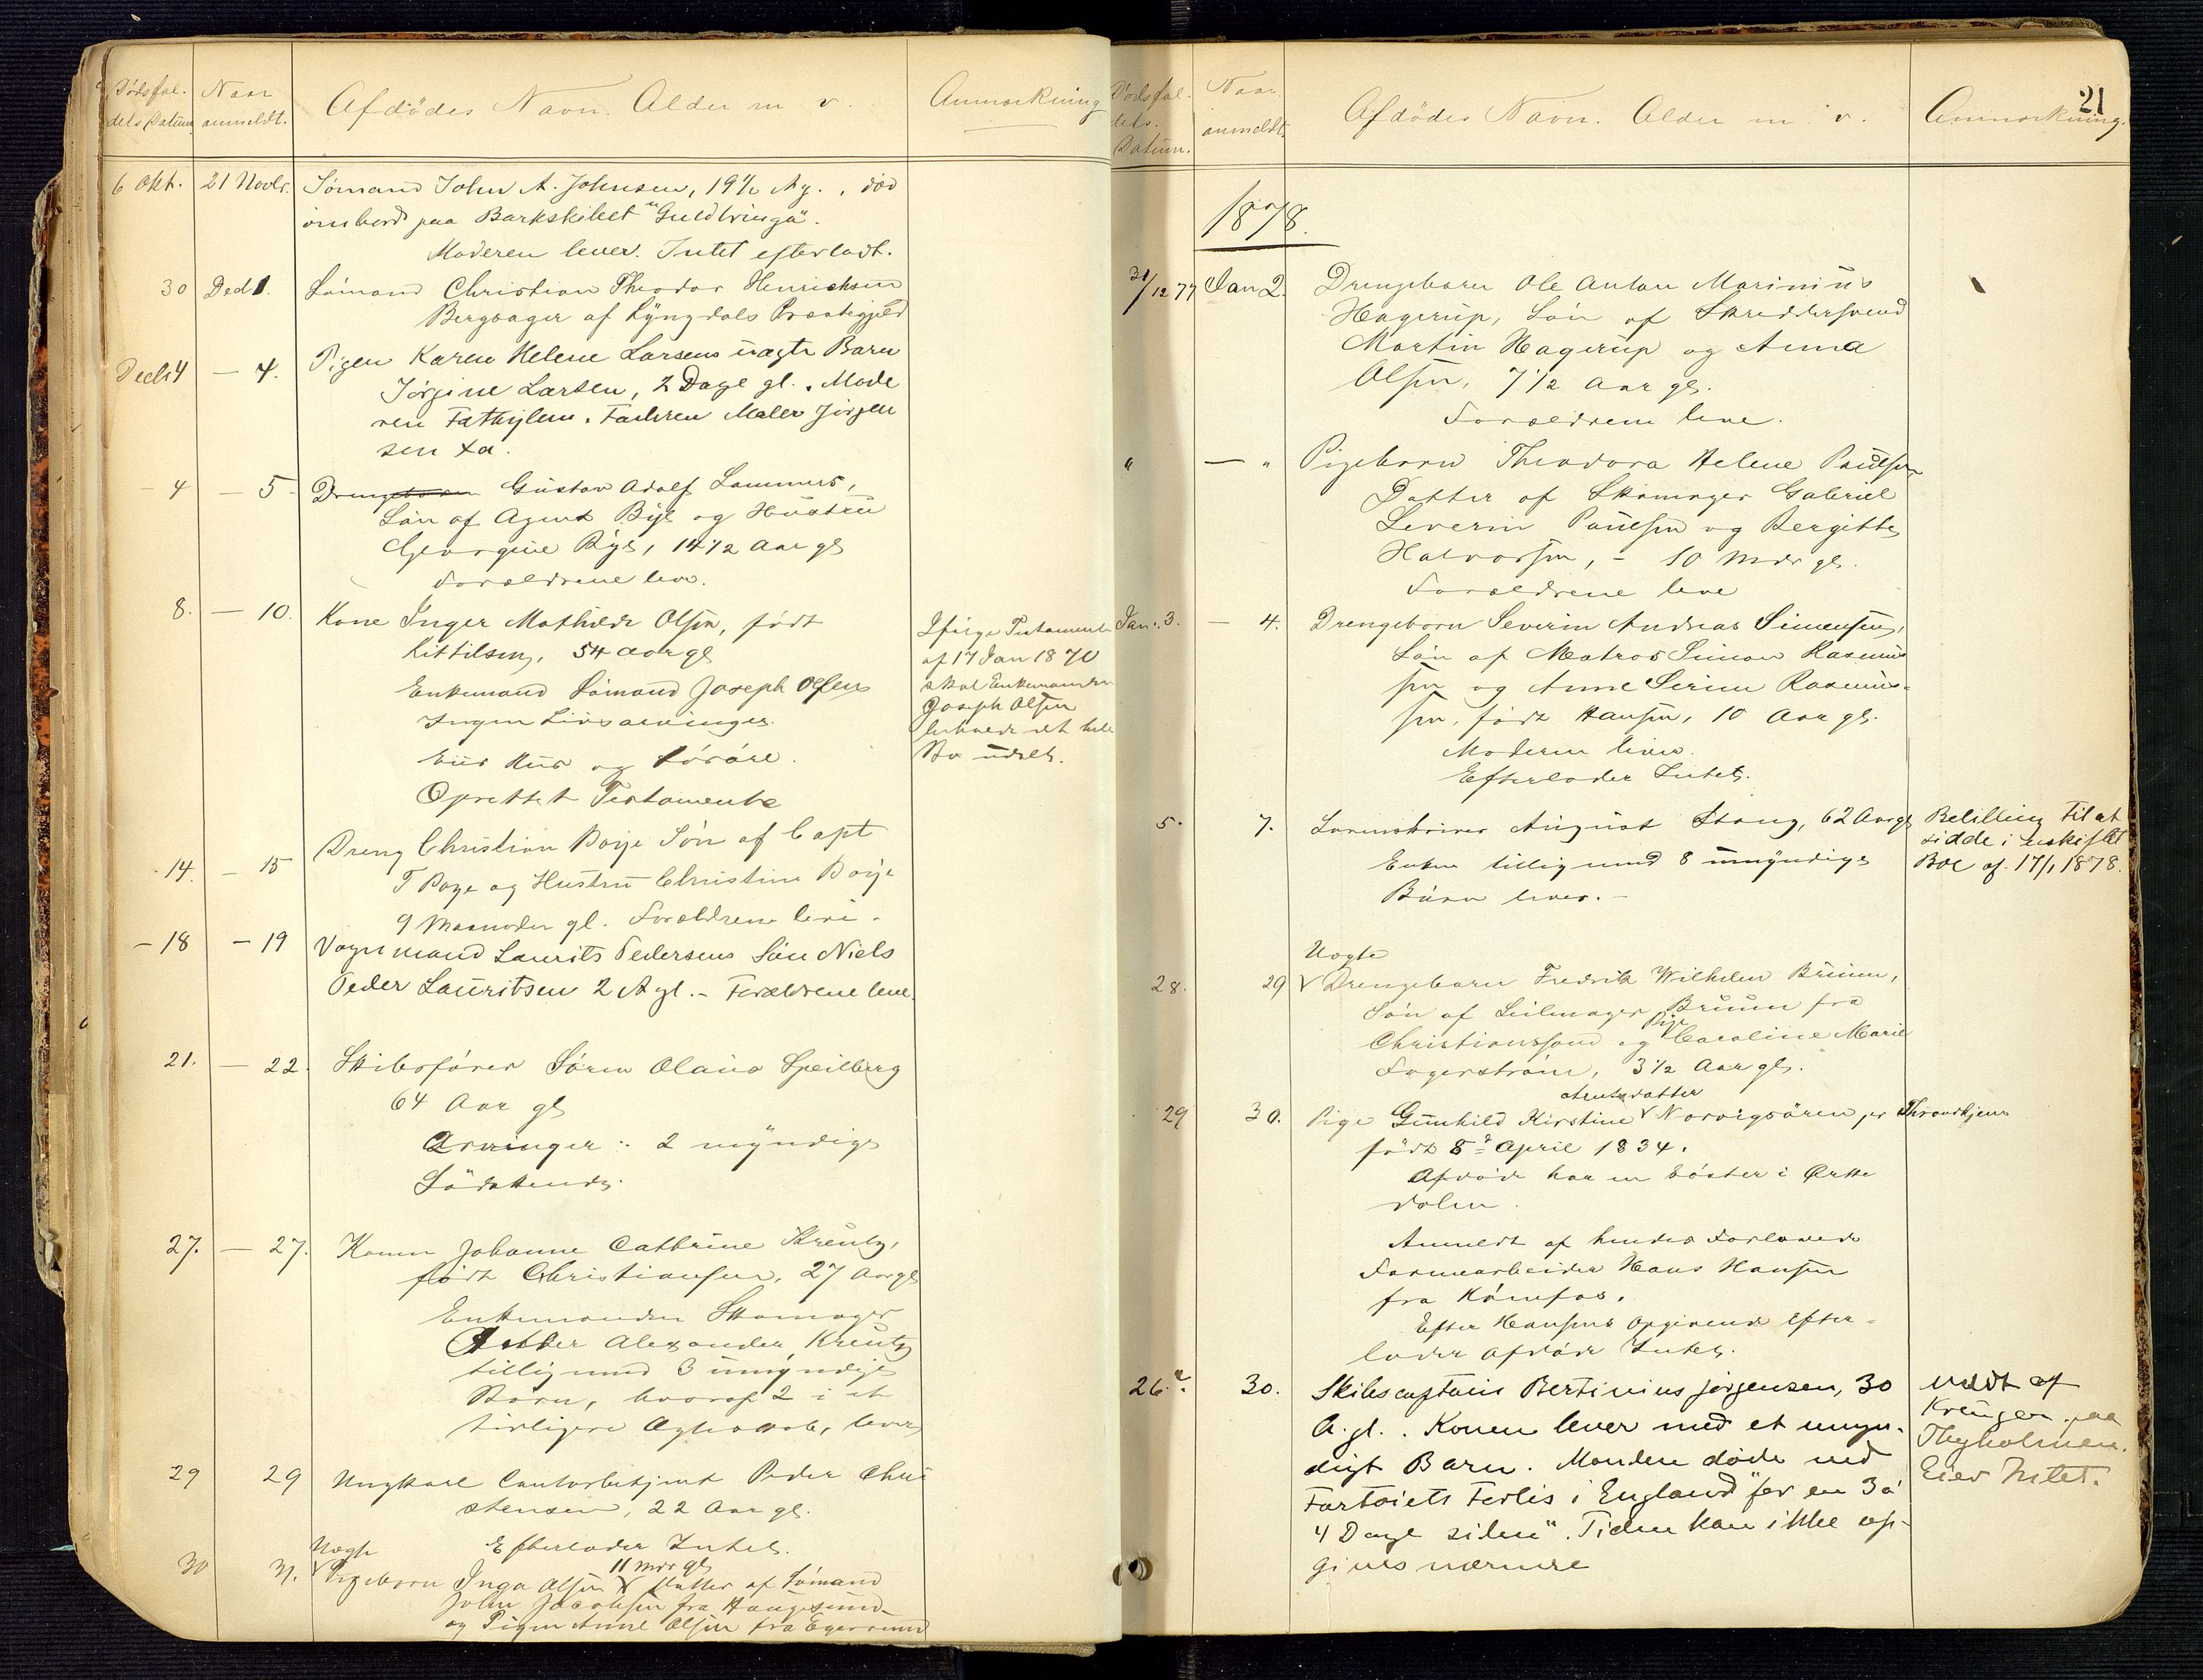 Dødsfal-
dets Datum
Naar
anmeldt.
Afdødes Navn. Alder m v.
Anmærkning
6 Okt. 21 Novbr. Sømand John A. Johnsen, 19½ Ag., død
ombord paa Barkskibet "Guldbringa".
Moderen lever. Intet efterladt.
30 Decb 1. Sømand Christian Theodor Henrichsen
Bergsager af Lyngdals Præstegjeld
Decbr 4 — 4. Pigen Karen Helene Larsens uægte Barn
Jørgine Larsen, 2 Dage gl. Mode
ren Fattiglem. Faderen Maler Jørgen
sen
- 4 — 5 - Drengebarn Gustav Adolf Lammers,
Søn af Agent Bye og Hustru
Georgine Bye, 14½ Aar gl
Forældrene leve.
8. — 10. Kone Inger Mathilde Olsen, født
Kittilsen, 54 aar gl
Enkemand Sømand Joseph Olsen
Ingen Livsarvinger.
Eier Hus og Løsøre.
Oprettet Testamente
Ifølge Testament
af 17 Jan 1870
skal Enkemanden
Joseph Olsen
beholde det hele
Bo udelt.
- 14. — 15 Dreng Christian Boije Søn af Capt
T Boye og Hustru Christine Boije
9 Maaneder gl. Forældrene leve -
- 18 — 19 Vognmand Laurits Pedersens Søn Niels
Peder Lauritsen 2 A gl. - Forældrene leve.
21. — 22. Skibsfører Søren Olaus Speilberg
64 Aar gl
Arvinger: 2 myndige
Sødskende.
27. — 27. Konen Johanne Cathrine Kreutz,
født Christiansen, 27 Aar gl
Enkemanden Skomager
Alexander Kreutz
tilligemed 3 umyndige
Børn, hvoraf 2 i et
tidligere Ægteskab, lever
29 29 Ungkarl Contorbetjent Peder Chri
stensen, 22 Aar gl.
Efterlader Intet.
30 31. Uægte
Pigebarn Inga Olsen 11 mdr gl Datter af Sømand
John Jacobsen fra Haugesund
og Pigen Anne Olsen fra Egersund
21
Dødsfal-
dets.
Datum.
Naar
anmeldt.
Afdødes Navn. Alder m. v.
Anmærkning.
1878.
31/12 77 Jan 2. Drengebarn Ole Anton Marinius
Hagerup, Søn af Skreddersvend
Martin Hagerup og Anna
Olsen, 7½ Aar gl.
Forældrene leve.
" — " Pigebarn Theodora Helene Paulsen
Datter af Skomager Gabriel
Severin Paulsen og Bergitte
Halvorsen, - 10 Mdr gl.
Forældrene leve
Jan. 3. — 4. Drengebarn Severin Andreas Simensen,
Søn af Matros Simon Rasmus
sen og Anne Serine Rasmus-
sen, født Hansen, 10 Aar gl.
Moderen lever.
Efterlader Intet.
5. 7. Sorenskriver August Stang, 62 Aar gl
Enken tilligemed 8 umyndige
Børn lever. -
Bevilling til at
sidde i uskiftet
Boe af 17/1 1878.
28. 29 Uægte
Drengebarn Fredrik Wilhelm Bruun,
Søn af Seilmager Bruun fra
Christianssand og Pige Caroline Marie
Fagerstrøm, 3½ Aar gl.
29 30. Pige Gunhild Kirstine Arntsdatter Norvigsøren, pr Throndhjem
født 8de April 1834.
Afdøde har en Søster i Orke
dalen.
Anmeldt af hendes Forlovede
Farmearbeider Hans Hansen
fra
Efter Hansens Opgivende efter-
lader Afdøde Intet.
26. 30. Skibscaptain Bertinius Jørgensen, 30
A. gl. Konen lever med et umyn-
digt Barn. Manden døde ved
Fartøiets Forlis i England "for en 3 à
4 Dage siden". Tiden kan ikke op-
gives nærmere
meldt af
Krüger paa
Thyholmen.
Eier Intet.